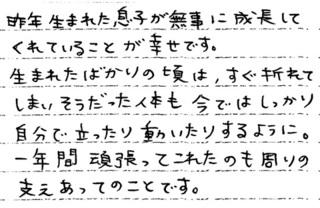 昨年生まれた息子が無事に成長して
くれていることが幸せです。
生まれたばかりの頃は,すぐ折れて
しまいそうだった体も今ではしっかり
自分で立ったり動いたりするように。
一年間頑張ってこれたのも周りの
支えあってのことです。